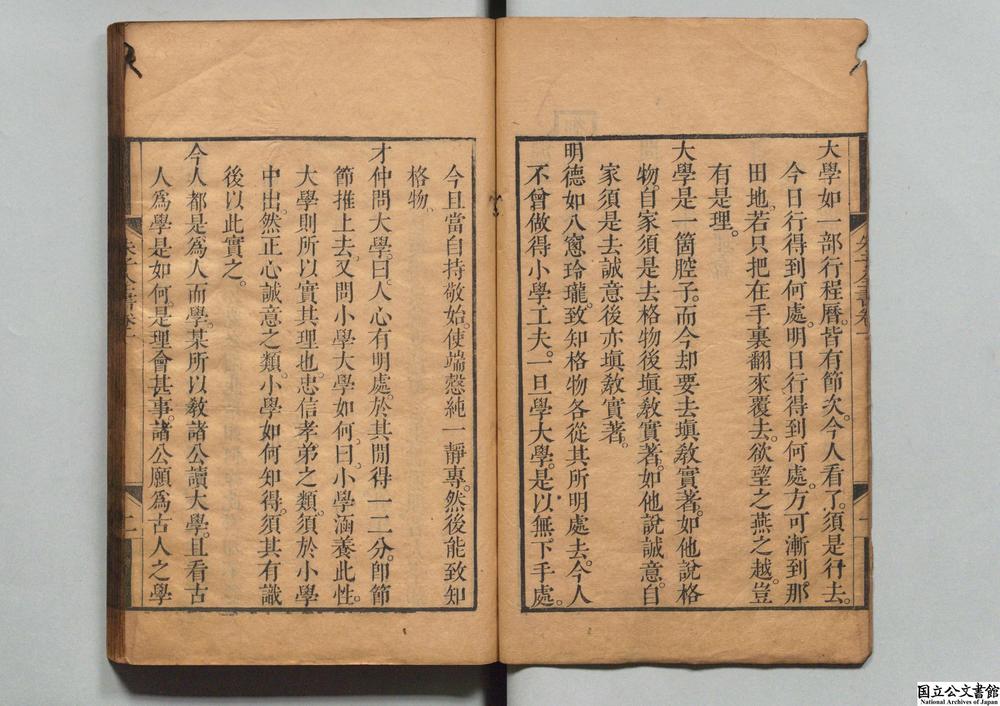 大學如一部行程曆。皆有節次。今人看了。須是行去。
今日行得到何處。明日行得到何處。方可漸到那
田地。若只把在手裏翻來覆去。欲望之燕之越。豈
有是理。
大學是一箇腔子。而今却要去塡敎實著。如他說格
物。自家須是去格物後塡敎實著。如他說誠意。自
家須是去誠意後亦塡敎實著。
明德如八窻玲瓏。致知格物各從其所明處去。今人
不曾做得小學工夫。一旦學大學。是以無下手處。
今且當自持敬始。使端慤純一靜專。然後能致知
格物、
才仲問大學。曰。人心有明處。於其閒得一二分。卽節
節推上去。又問小學大學如何。曰。小學涵養此性。
大學則所以實其理也。忠信孝弟之類。須於小學
中出。然正心誠意之類。小學如何知得。須其有識
後以此實之。
今人都是爲人而學。某所以敎諸公讀大學。且看古
人爲學是如何。是理會甚事。諸公願爲古人之學
朱子全書卷一
二
国立公文書館
National Archives of Japan